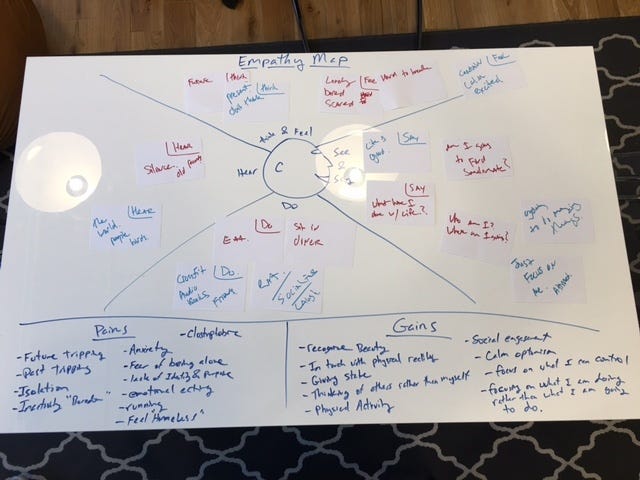 Empathy Map
Future | think
present | think
Lonely | Feel Hard to breathe
bored
Scared
Feel
Calm
Excited
think & Feel
Hear
Silence.
old
Hear
C
See
&
Say
Say
am I going
to
Say
what have I
done w/ life?
Who am I?
where am I going?
Hear
The
world.
people
Do
Eat.
Sit in
diner
Do
Crossfit | Do
Audio
Books.
Socialize
Laugh
Just
Focus on
me.
Pains
- Claustrophobic
- Future tripping
- Past tripping
- Isolation
- Inactivity "Boredom"
- Anxiety
- Fear of being alone
- lack of Identity & Purpose
- emotional eating
- running
- Feel "Homeless"
Gains
- recognize Beauty
- In touch with physical reality
- Giving
- Thinking of others rather than myself
- Physical Activity
- Social engagement
- Calm optimism
- focus on what I can control
- focusing on what I am doing
rather than what I am going
to do.